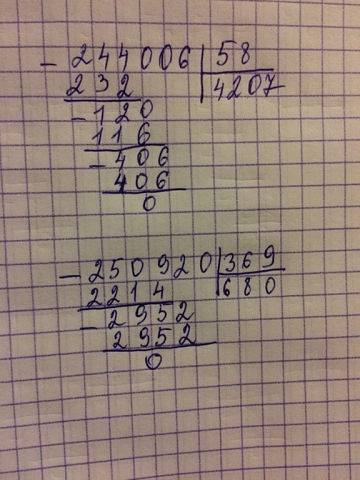 - 244006 | 58
232 4207
- 120
116
- 406
406
0
- 250920 | 369
2214 680
- 2952
2952
0